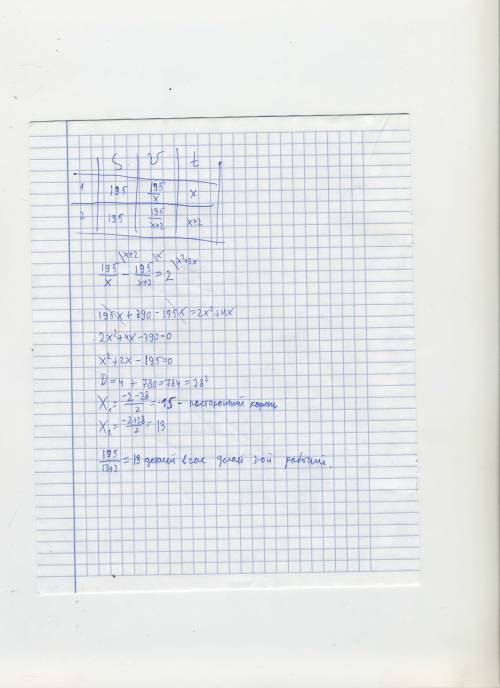 S v t
1 195 195/x x
2 195 195/(x+2) x+2
195/x \x+2 - 195/(x+2) \x = 2 \x²+2x
195x + 390 - 195x = 2x²+4x
2x²+4x-390=0
x²+2x-195=0
D=4+780=784=28²
X₁=(-2-28)/2=-15 - посторонний корень
X₂=(-2+28)/2=13
195/(13+2)=13 деталей в час делает 2-ой рабочий.